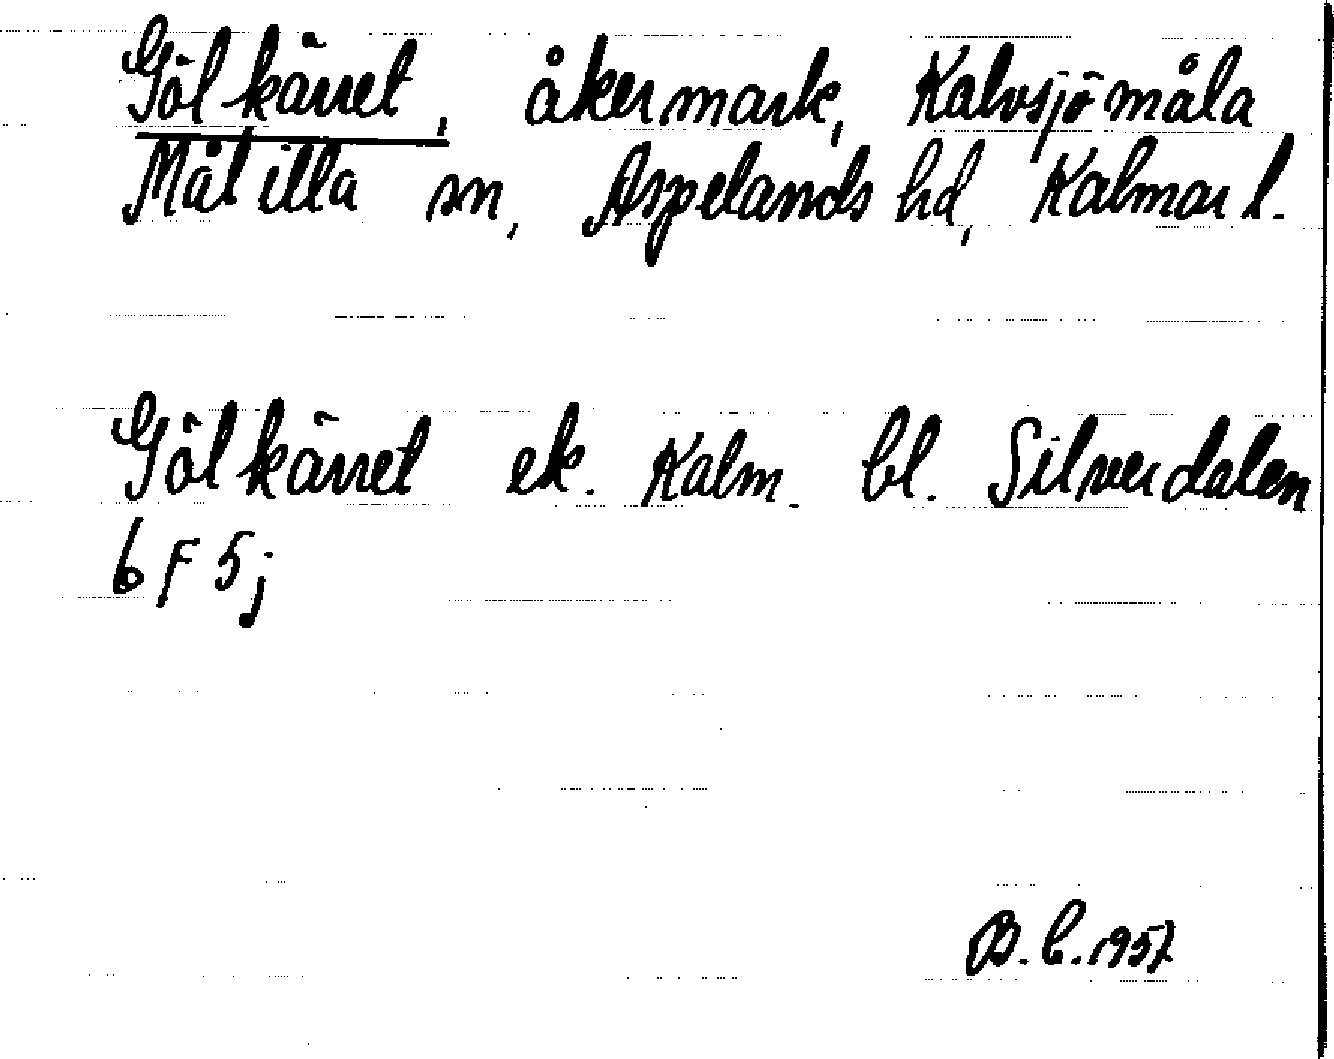 Gölkärret, åkermark, Kalvsjömåla
Målilla sn, Aspelands hd, Kalmar l.
Gölkärret ek. Kalm. bl. Silverdalen
6 F 5 j
B. C. 1957